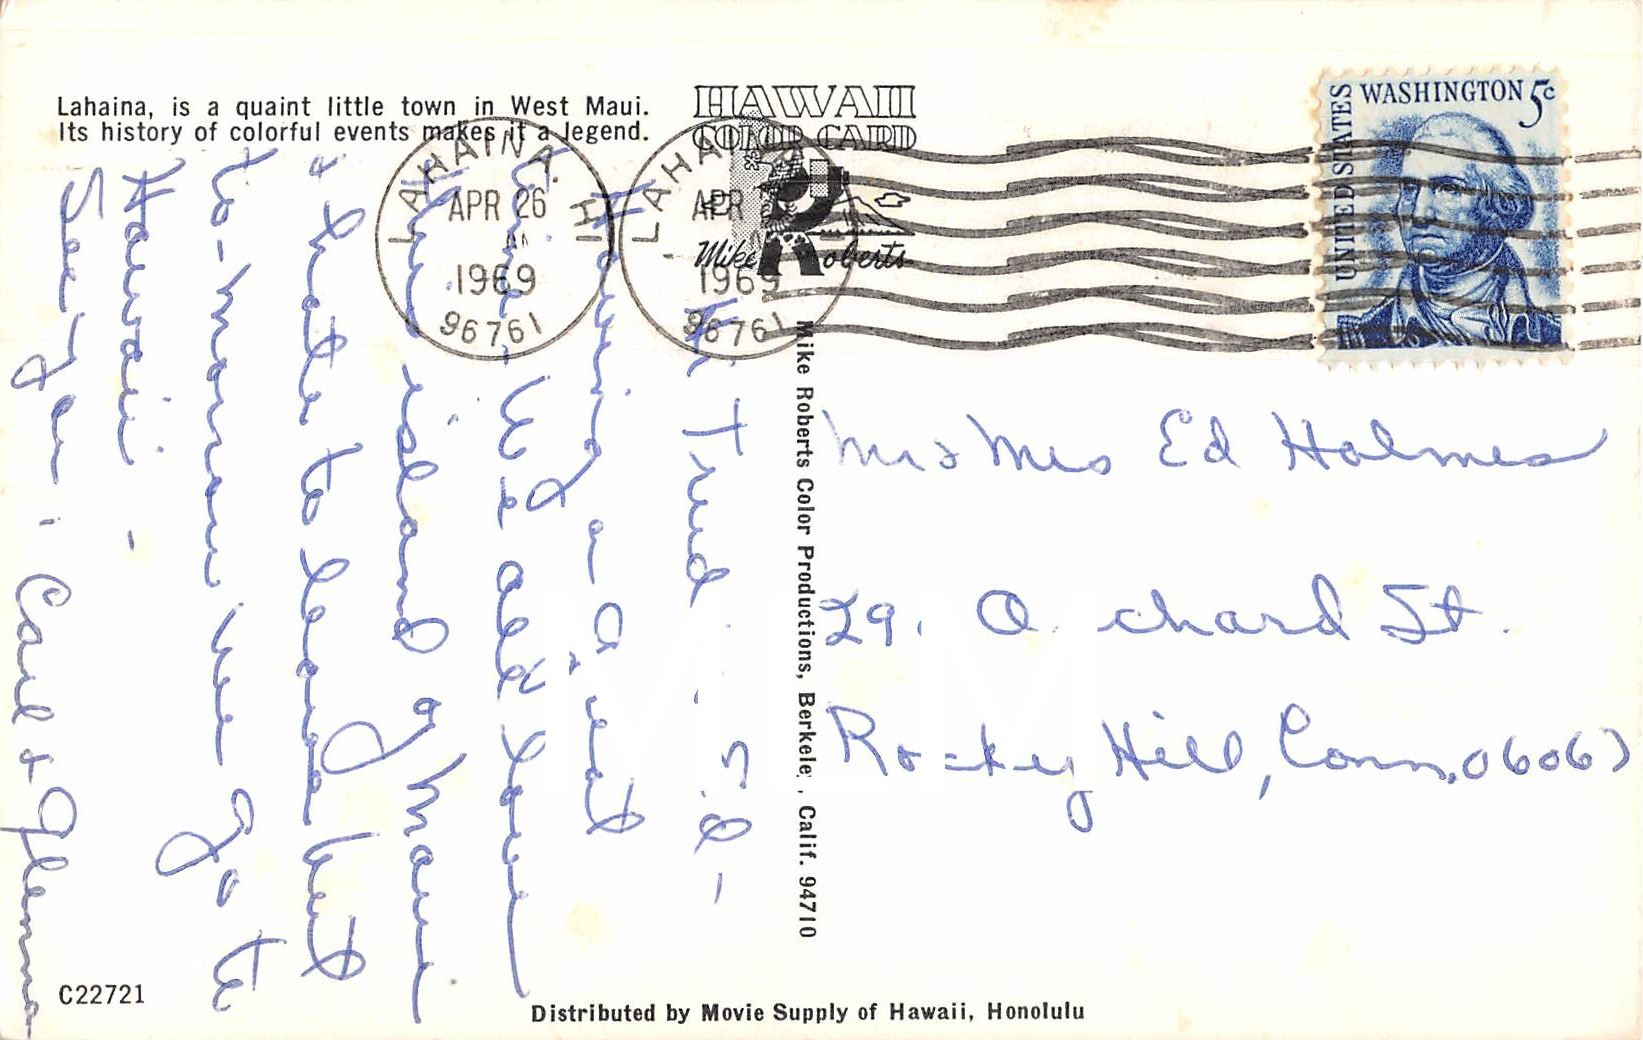 Lahaina, is a quaint little town in West Maui.
Its history of colorful events makes it a legend.
HAWAII
COLOR CARD
Mike Roberts
LAHAINA, HI
APR 26
1969
96761
LAHAINA
APR
1969
96761
UNITED STATES
WASHINGTON 5c
Hi Trud. & Ed -
Having a Great
time. We all love
this island of Maui
& hate to leave but
to-morrow we go to
Hawaii -
See you: Carl & Glenna
Mike Roberts Color Productions, Berkele, Calif. 94710
Mr & Mrs Ed Holmes
29. O chard St.
Rocky Hill, Conn. 06067
C22721
Distributed by Movie Supply of Hawaii, Honolulu